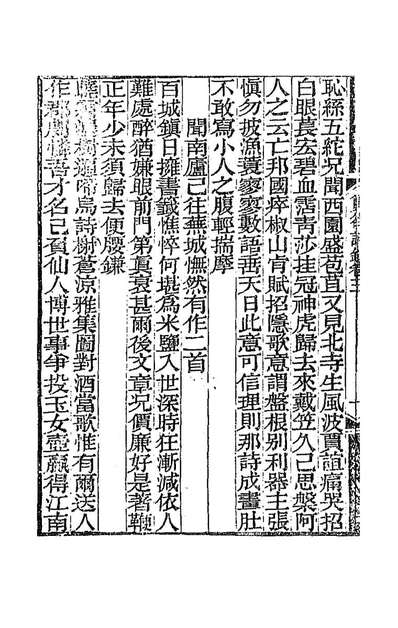 恥絲五紽況聞西園盛苞苴又見北寺生風波賈誼痛哭招
白眼萇宏碧血霑靑莎挂冠神虎歸去來戴笠久已思槃阿
人之云亡邦國瘁椒山肯賦招隱歌意謂盤根別利器主張
愼勿披漁蓑寥寥數語垂天日此意可信理則那詩成畫肚
不敢寫小人之腹輕揣摩
聞南廬已往蕪城憮然有作二首
百城鎭日擁書籤憔悴何堪爲米鹽入世深時狂漸減依人
難處醉猶嫌眼前門第眞衰甚爾後文章兄價廉好是著鞭
正年少未須歸去便腰鎌
啼烏詩榭蒼涼雅集圖對酒當歌惟有爾送人
作郡吾才名已負仙人博世事爭投玉女壺贏得江南